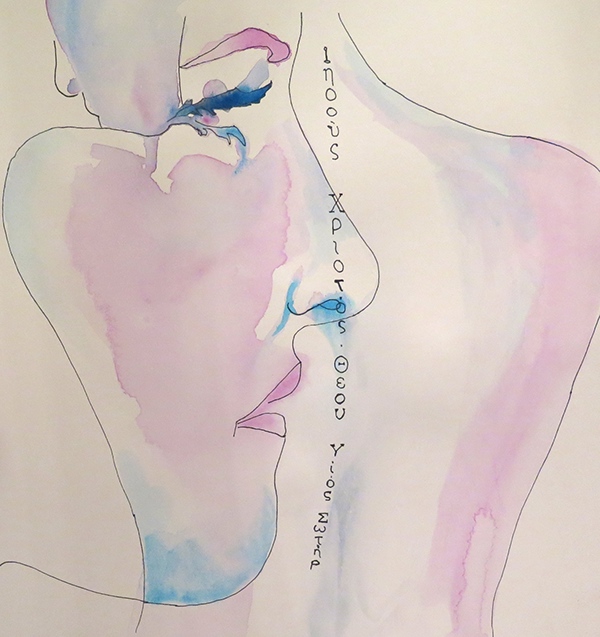 Ιησοὺς Χριστὸς · Θεου Υιός Σωτήρ